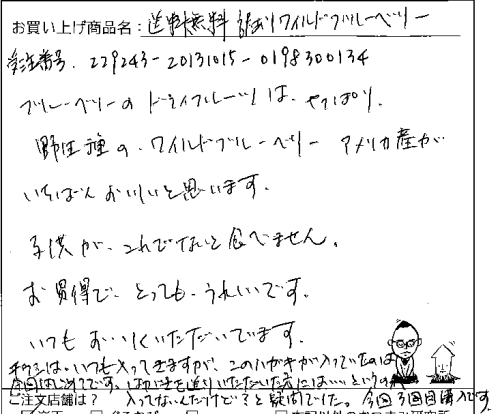 お買い上げ商品名：送料無料 訳ありワイルドブルーベリー
受注番号. 229243-20131015-0198300134
ブルーベリーのドライフルーツは、やっぱり、
野生種の、ワイルドブルーベリー アメリカ産が
いちばんおいしいと思います。
子供が、これでないと食べません。
お買得で、とっても、うれしいです。
いつもおいしくいただいてます。
チラシは、いつも入ってきますが、このハガキが入っていたのは
今回はじめてです。はがきを送りいただいた方には…というの
ご注文店舗は？ 入ってないんだけど？と疑問でした。今回3回目購入です